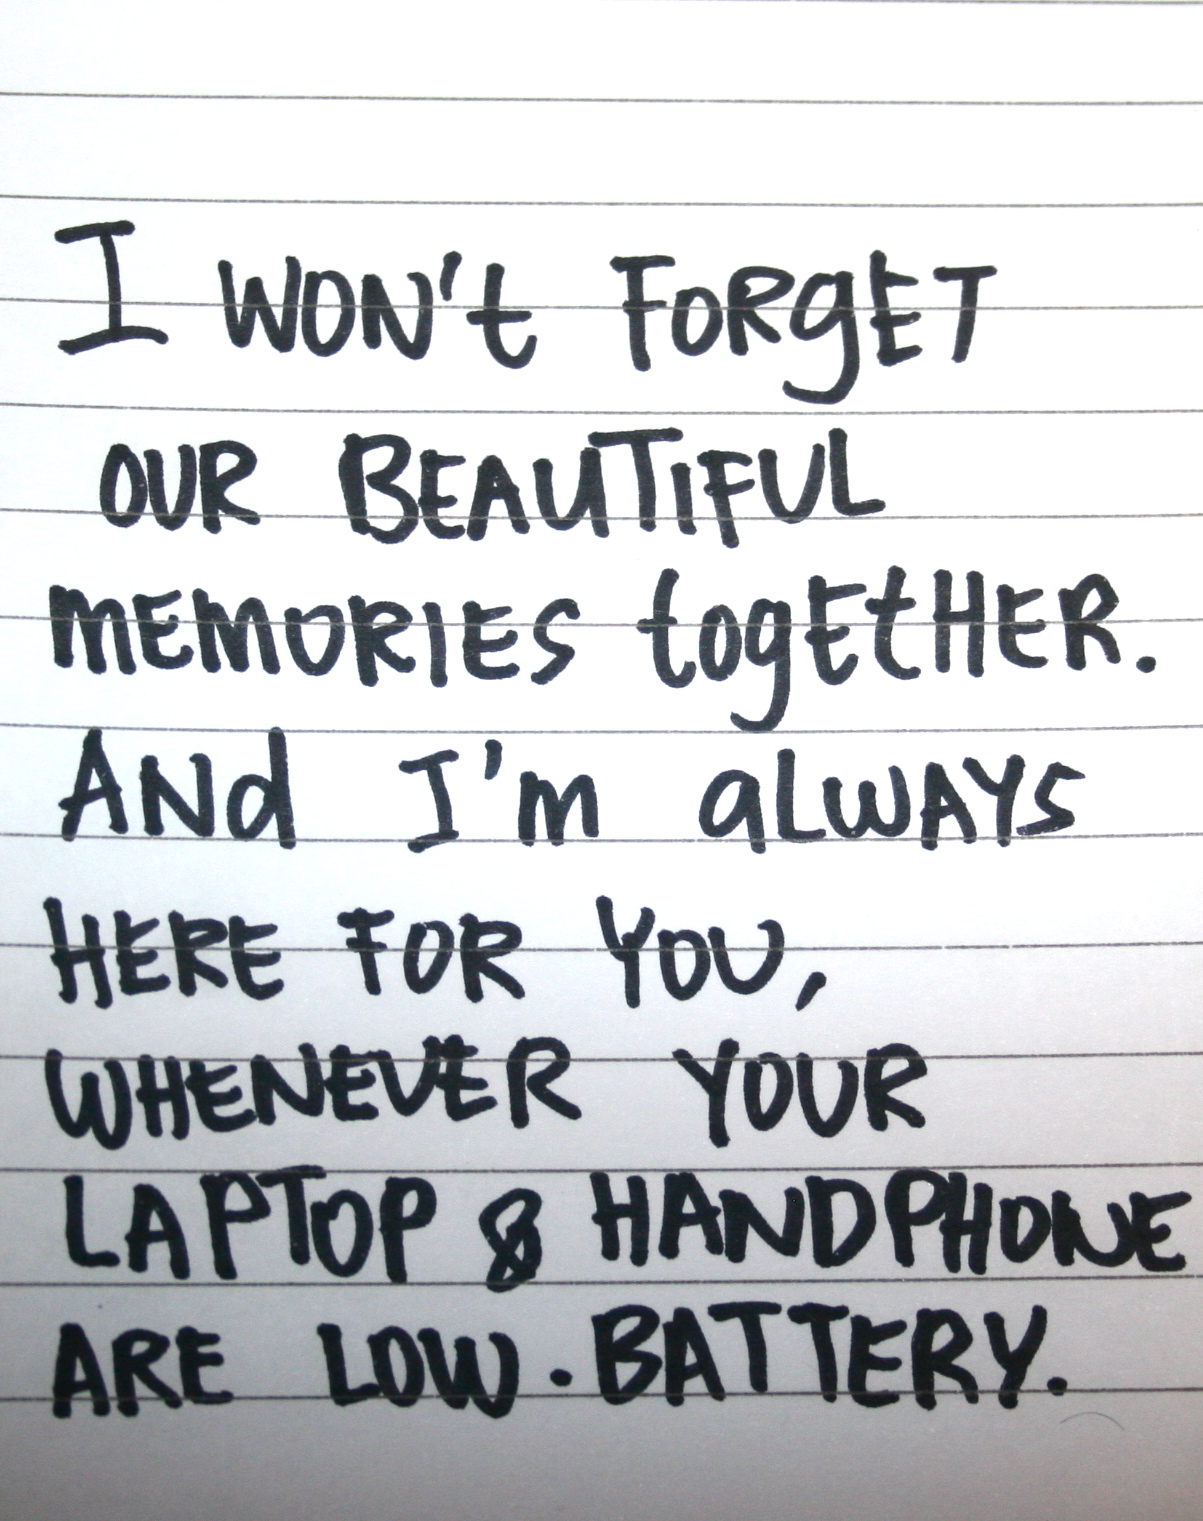 I WON't FORgET
OUR BEAUTIFUL
MEMORIES togEtHER.
ANd I'm aLWAYS
HERE FOR YOU,
WHENEVER YOUR
LAPTOP & HANDPHONE
ARE LOW.BATTERY.